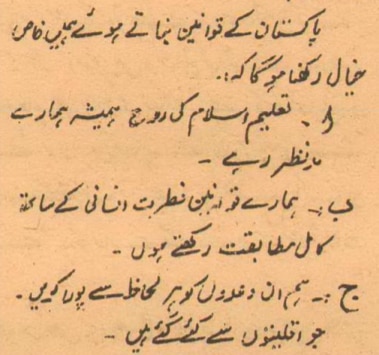 پاکستان کے قوانین بناتے ہوئے ہمیں خاص
خیال رکھنا ہوگا کہ:۔
ا ۔ تعلیم اسلام کی روح ہمیشہ ہمارے
مدنظر رہے ۔
ب:۔ ہمارے قوانین فطرت انسانی کے ساتھ
کامل مطابقت رکھتے ہوں ۔
ج:۔ ہم ان وعدوں کو ہر لحاظ سے پورا کریں ۔
جو اقلیتوں سے کئے گئے ہیں ۔